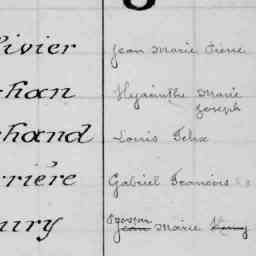 ivier Jean Marie Pierre
han Hyacinthe Marie
Joseph
hand Louis Felix
rière Gabriel Francois
ury Jean Marie